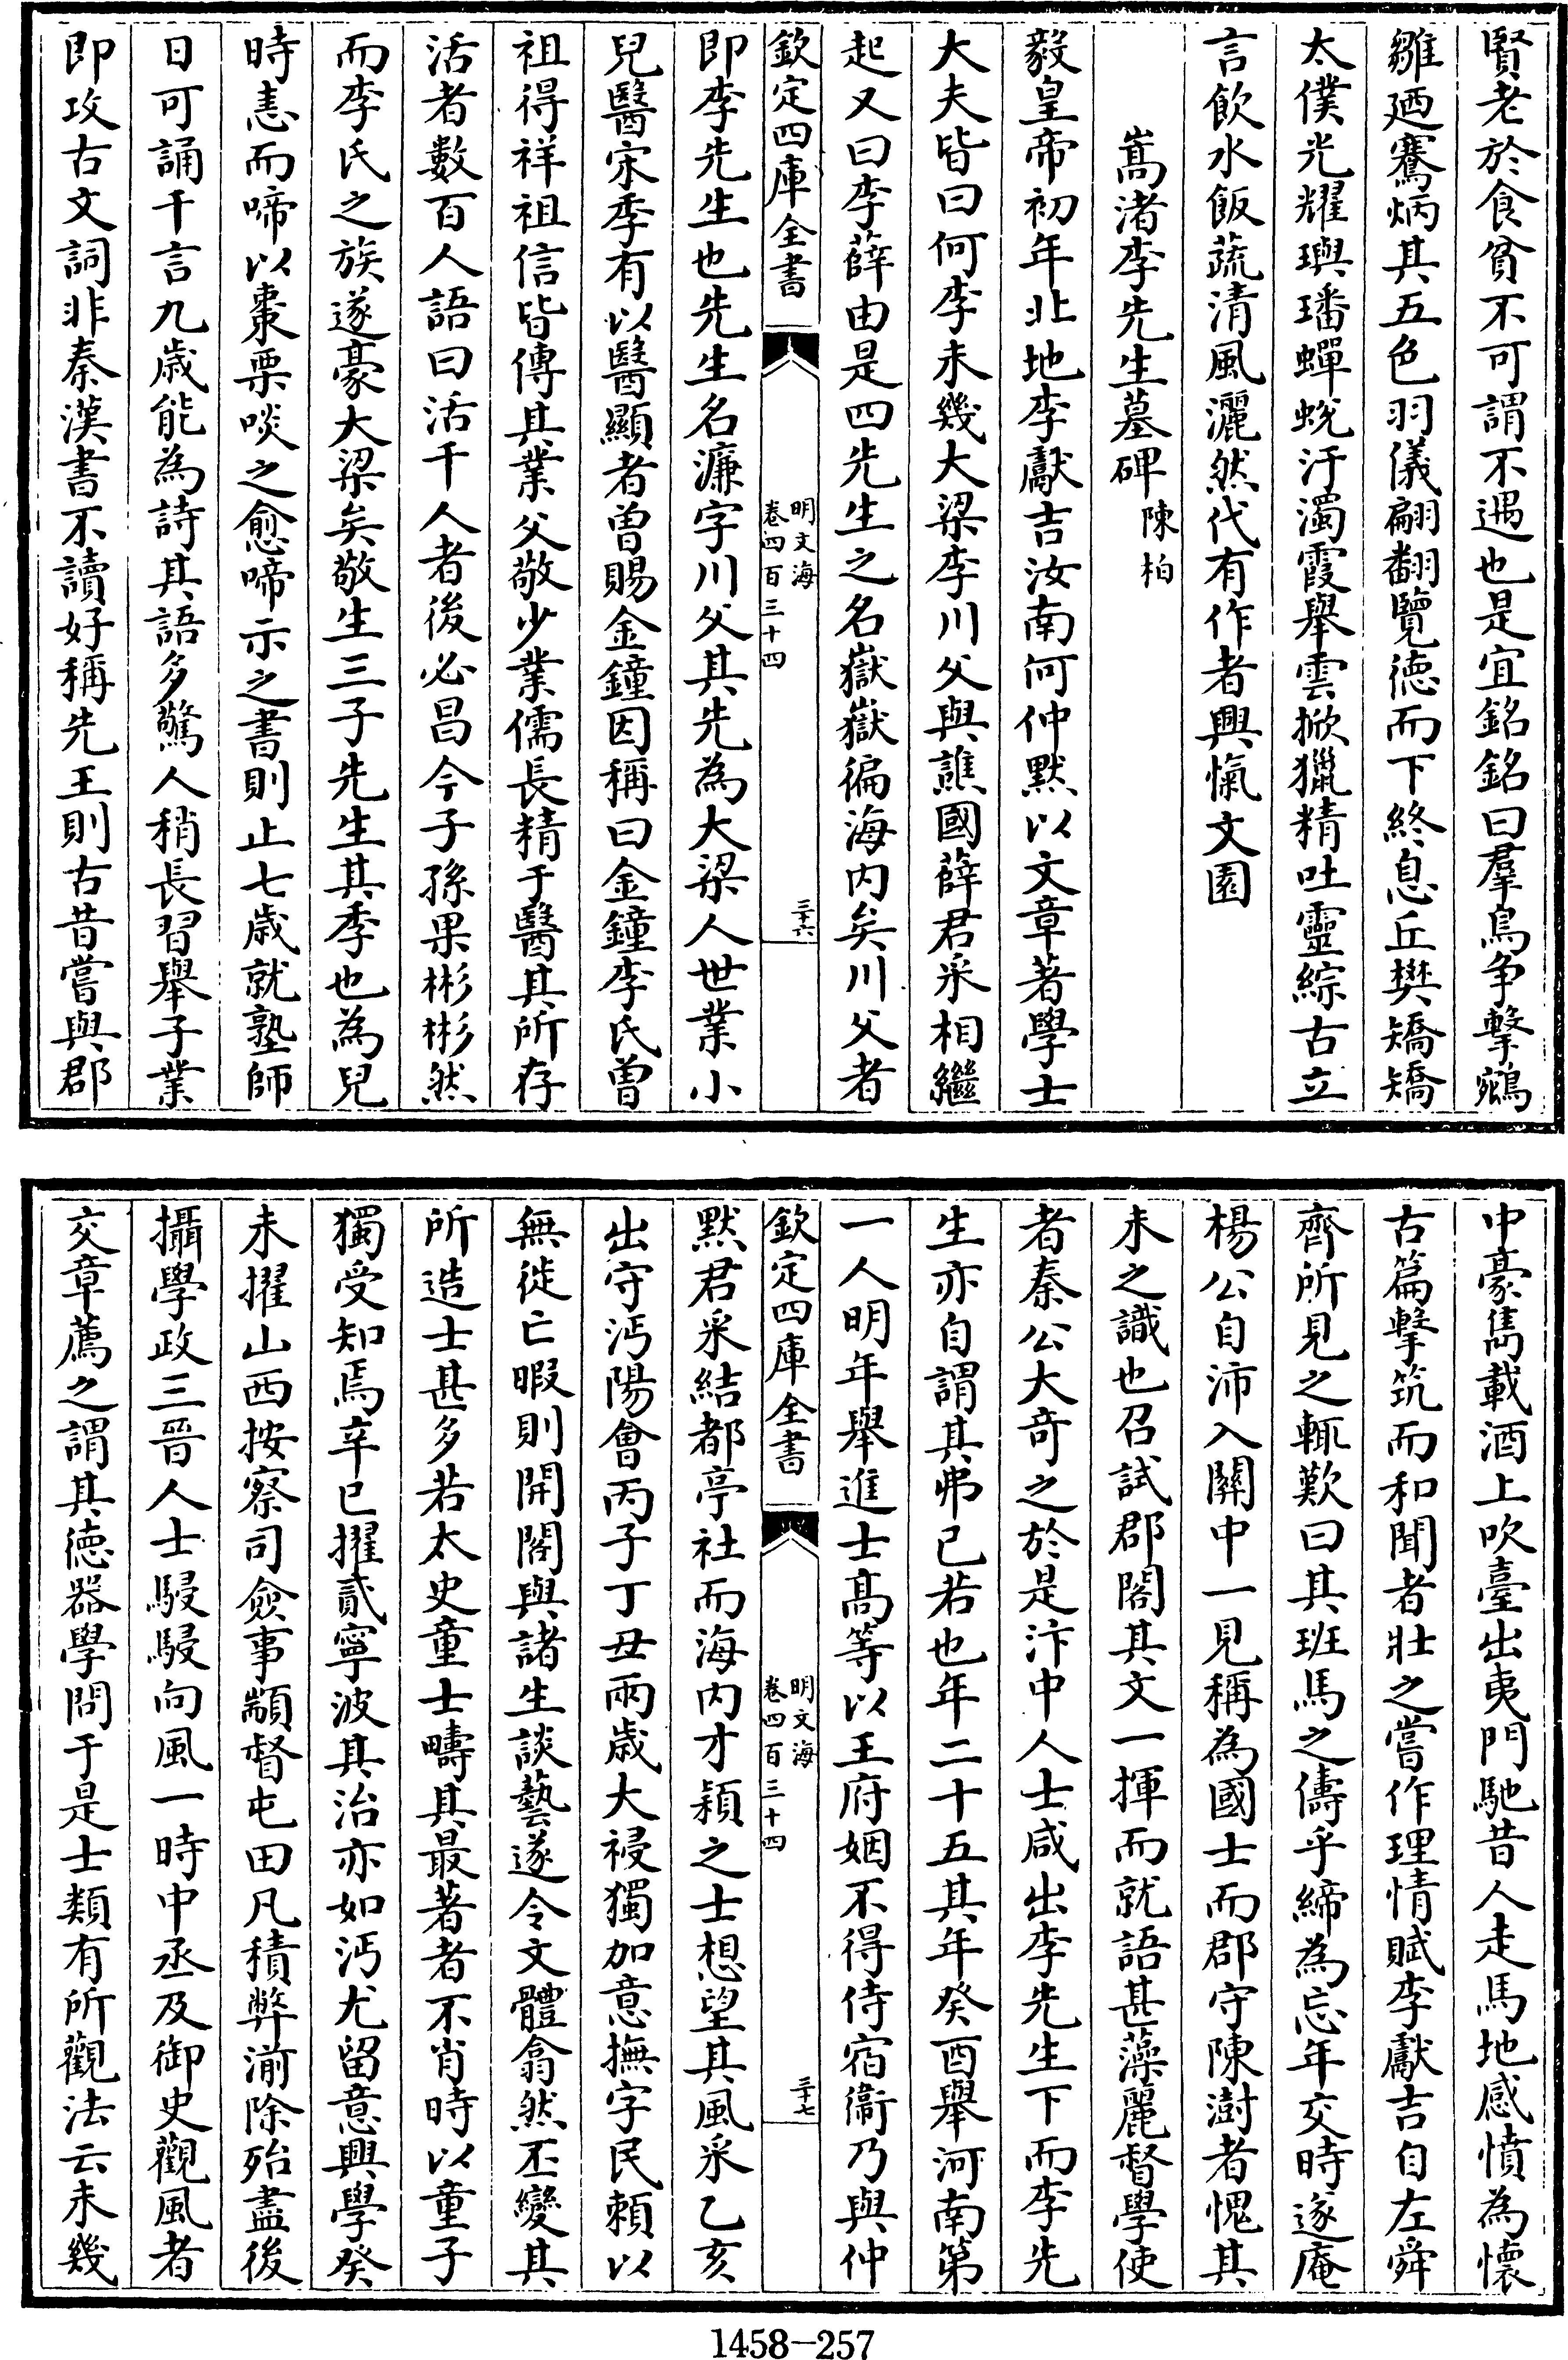 賢老於食貧不可謂不遇也是宜銘銘曰羣鳥争擊鵷
雛廼騫炳其五色羽儀翩翻覽徳而下終息丘樊矯矯
太僕光耀璵璠蟬蛻汙濁霞舉雲掀獵精吐靈綜古立
言飲水飯蔬清風灑然代有作者興愾文園
嵩渚李先生墓碑 陳柏
毅皇帝初年北地李獻吉汝南何仲默以文章著學士
大夫皆曰何李未幾大梁李川父與譙國薛君采相繼
起又曰李薛由是四先生之名嶽嶽徧海内矣川父者
欽定四庫全書
明文海
卷四百三十四
三十六
即李先生也先生名濂字川父其先為大梁人世業小
兒醫宋季有以醫顯者曽賜金鐘因稱曰金鐘李氏曽
祖得祥祖信皆傳其業父敬少業儒長精于醫其所存
活者數百人語曰活千人者後必昌今子孫果彬彬然
而李氏之族遂豪大梁矣敬生三子先生其季也為兒
時恚而啼以棗栗啖之愈啼示之書則止七歳就塾師
日可誦千言九歳能為詩其語多驚人稍長習舉子業
即攻古文詞非秦漢書不讀好稱先王則古昔嘗與郡
中豪雋載酒上吹臺出夷門馳昔人走馬地感憤為懷
古篇擊筑而和聞者壯之嘗作理情賦李獻吉自左舜
齊所見之輒歎曰其班馬之儔乎締為忘年交時遂庵
楊公自沛入關中一見稱為國士而郡守陳澍者愧其
未之識也召試郡閣其文一揮而就語甚藻麗督學使
者秦公大奇之於是汴中人士咸出李先生下而李先
生亦自謂其弗已若也年二十五其年癸酉舉河南第
一人明年舉進士髙等以王府姻不得侍宿衞乃與仲
欽定四庫全書
明文海
卷四百三十四
三十七
默君采結都亭社而海内才穎之士想望其風采乙亥
出守沔陽會丙子丁丑兩歳大祲獨加意撫字民賴以
無徙亡暇則開閣與諸生談藝遂令文體翕然丕變其
所造士甚多若太史童士疇其最著者不肖時以童子
獨受知焉辛巳擢貳寧波其治亦如沔尤留意興學癸
未擢山西按察司僉事顓督屯田凡積弊湔除殆盡後
攝學政三晉人士駸駸向風一時中丞及御史觀風者
交章薦之謂其徳器學問于是士類有所觀法云未幾
1458-257